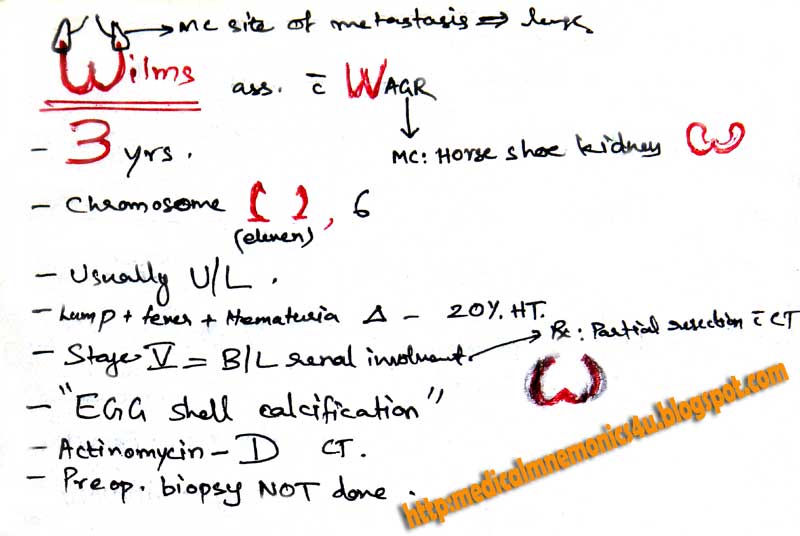 MC site of metastasis ⇒ lungs
Wilms ass. c̄ WAGR
- 3 yrs.
MC: Horse shoe kidney
- Chromosome 11, 6
(eleven)
- Usually U/L.
- Lump + fever + Hematuria Δ - 20% HT.
- Stage V = B/L renal involvment → Rx: Partial resection c̄ CT
- "EGG shell calcification"
- Actinomycin-D CT.
- Preop. biopsy NOT done.
http:medicalmnemonics4u.blogspot.com